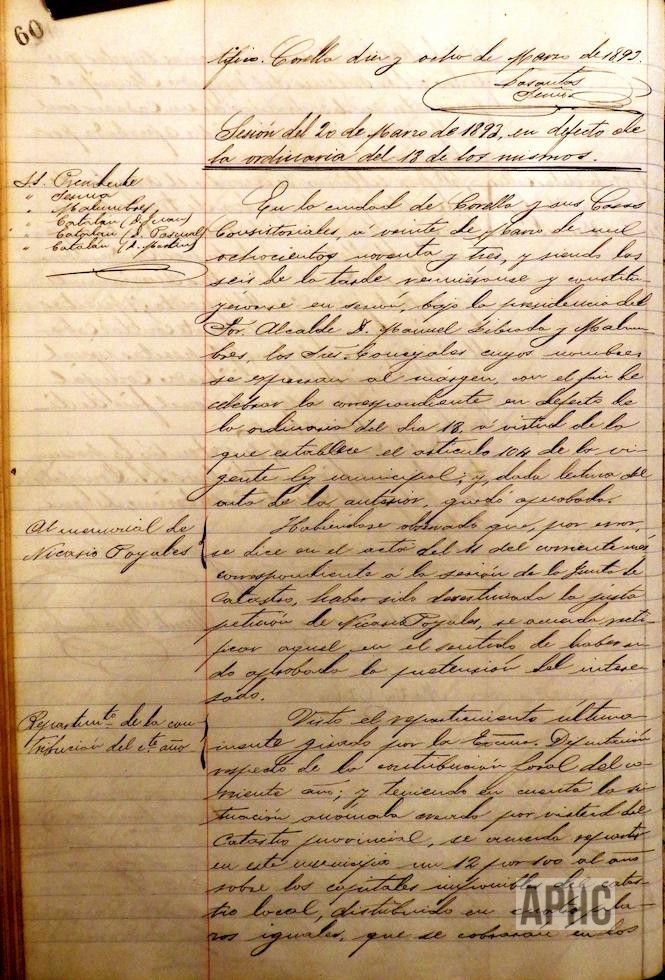 60
tifico. Corella diez y ocho de Marzo de 1893.
Sesión del 20 de Marzo de 1893, en defecto de
la ordinaria del 18 de los mismos.
S.S. Presidente
" Malumbres
" Catalán (D. Juan)
" Catalán (D. Pascual)
" Catalán (D. Martin)
En la ciudad de Corella y sus Casas
Consistoriales, á veinte de Marzo de mil
ochocientos noventa y tres, y siendo las
seis de la tarde reuniéronse y constitu-
yéronse en sesión, bajo la presidencia del
Sor. Alcalde D. Manuel Librada y Malum-
bres, los Sres. Concejales cuyos nombres
se expresan al márgen, con el fin de
celebrar la correspondiente en defecto de
la ordinaria del dia 18, á virtud de lo
que establece el artículo 104 de la vi-
gente ley municipal; y, dada lectura del
acta de la anterior, quedó aprobada.
Al memorial de
Nicasio Poyales
Habiéndose observado que, por error,
se dice en el acta del 11 del corriente mes
correspondiente á la sesión de la Junta de
Catastro, haber sido desestimada la justa
petición de Nicasio Poyales, se acuerda recti-
ficar aquel, en el sentido de haber si-
do aprobada la pretensión del intere-
sado.
Repartimto. de la con-
tribucion del cte. año
Visto el repartimiento última-
mente girado por la Excma. Diputación
respecto de la contribución foral del co-
rriente año; y teniendo en cuenta la si-
tuación anómala creada por virtud del
Catastro provincial, se acuerda repartir
en este municipio un 12 por 100 al año
sobre los capitales imponibles del catas-
tro local, distribuido en
ros iguales, que se cobrarán en los
APHC